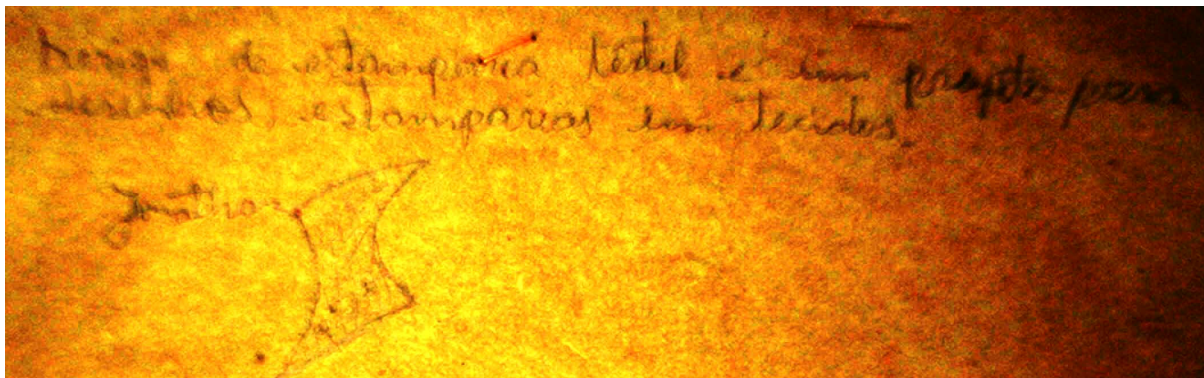 Design de estamparia têxtil é um projeto para
desenhos, estamparias em tecidos.
Jonathan